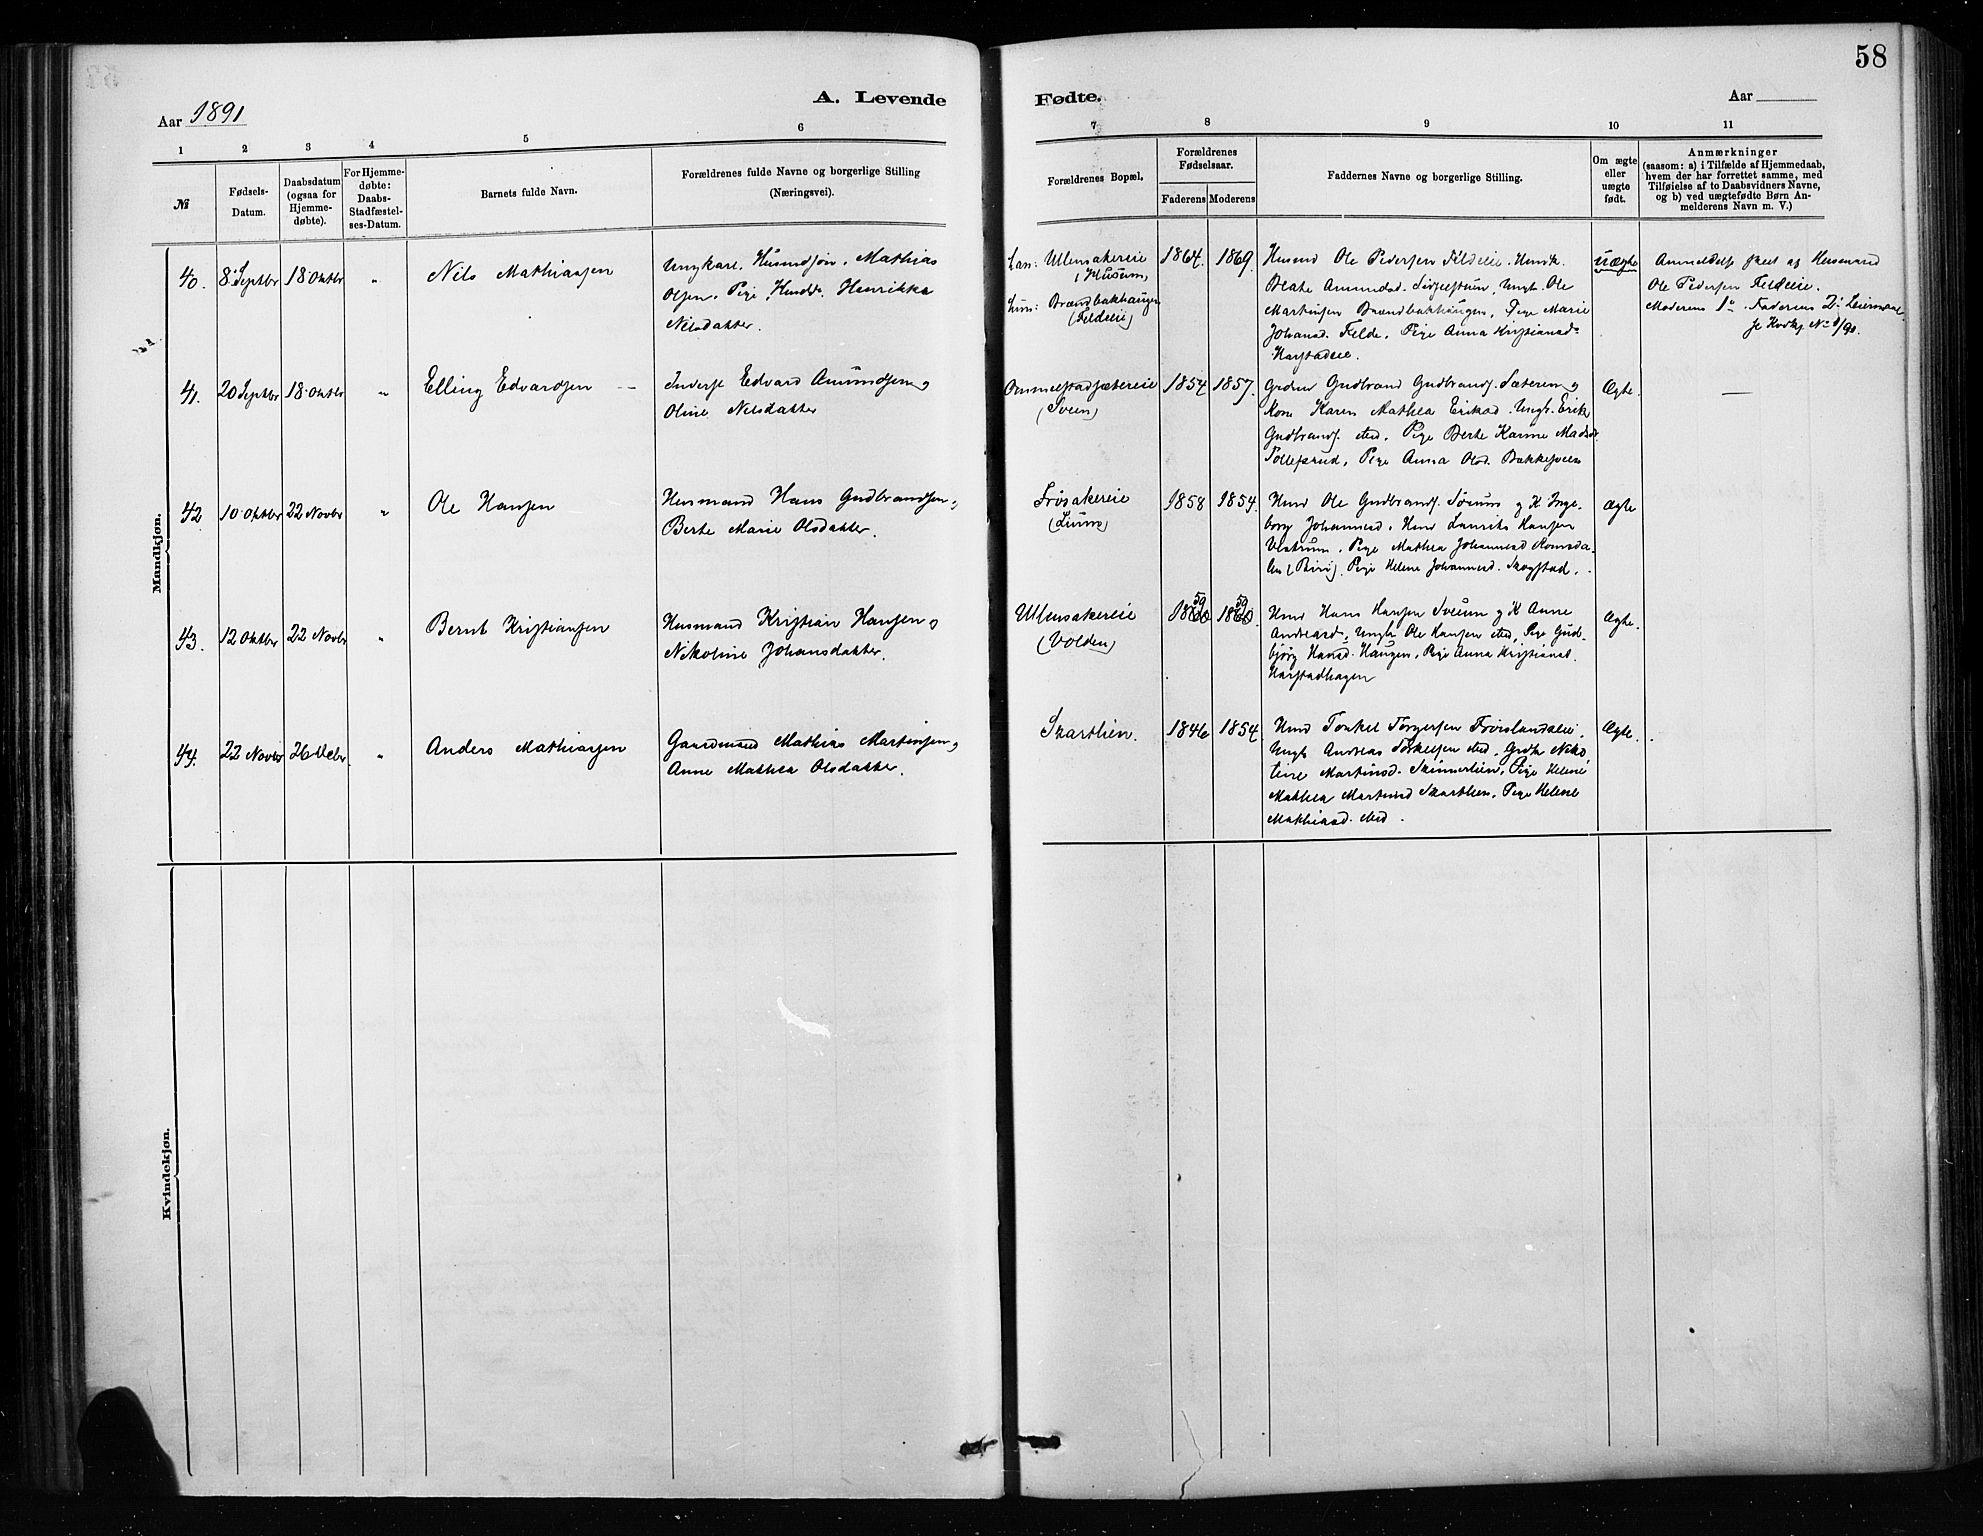 58
Aar 1891
A. Levende
Fødte.
Aar
1 2 3 4 5 6 7 8 9 10 11
№
Fødsels-
Datum.
Daabsdatum
(ogsaa for
Hjemme-
døbte).
For Hjemme-
døbte:
Daabs-
Stadfæstel-
ses-Datum.
Barnets fulde Navn.
Forældrenes fulde Navne og borgerlige Stilling
(Næringsvei).
Forældrenes Bopæl.
Forældrenes
Fødselsaar.
Faderens Moderens
Faddernes Navne og borgerlige Stilling.
Om ægte
eller
uægte
født.
Anmærkninger
(saasom: a) i Tilfælde af Hjemmedaab,
hvem der har forrettet samme, med
Tilføielse af to Daabsvidners Navne,
og b) ved uægtefødte Børn An-
melderens Navn m. V.)
Mandkjøn.
40. 8 Septbr 18 Oktbr " Nils Mathiassen
Ungkarl. Husmdsøn. Mathias
Olsen. Pige Henrikka
Nilsdatter.
han: Ullensakereie
(Husum)
hun: Brændbakhaugen
(Fildeie)
1864. 1869.
Husmd Ole Pedersen Fildeie. Henrik.
Beate Amundsd. Ungk. Ole
Martinsen Brændbakhaugen, Pige Marie
Johansd. Felde, Pige Anna Kristiansd.
Harstadeie.
uægte
Anmeldelse skeet af Husmand
Ole Pedersen Fildeie.
Moderens 1ste. Faderens 2. Leiermaal
41. 20 Septbr 18 Oktbr " Elling Edvardsen
Inderst Edvard Amundsen og
Oline Nilsdatter
(Sveen)
1854 1857.
Grdm Gudbrand Gudbrands. Sæteren og
Kone Karen Mathea Eriksd. Ungk. Erik
Gudbrands. sted, Pige Berte Karine Madsd.
Tollefsrud, Pige Anna Olsd. Bakkesveen
Ægte.
—
42 10 Oktbr 22 Novbr " Ole Hansen
Husmand Hans Gudbrandsen og
Berte Marie Olsdatter.
Frøsakereie
(Linna)
1858 1854.
Husmd Ole Gudbrands. Sørum og K. Inge-
borg Johannesd. Husmd Laurits Hansen
Vestrum, Pige Mathea Johannesd Romsda-
len (Biri), Pige Helene Johannesd. Skogstad.
Ægte
43. 12 Oktbr 22 Novbr " Bernt Kristiansen
Husmand Kristian Hansen og
Nikoline Johansdatter.
Ullensakereie
(Volden)
1860 59 1860 59.
Husmd Hans Hansen Sveum og K Anne
Andreasd., Ungk Ole Hansen sted, Pige Gud-
bjørg Hansd. Haugen, Pige Anna Kristiansd.
Harstadhagen
Ægte.
44. 22 Novbr 26 Decbr " Anders Mathiassen
Gaardmand Mathias Martinsen og
Anne Mathea Olsdatter.
Skartlien.
1846 1854
Husmd Torkel Torgersen Frøislandseie,
Ungk Andreas Torkelsen sted, Grdk Niko-
line Martinsd. Skinnerlien, Pige Helene
Mathea Martinsd Skartlien, Pige Helene
Mathiasd. sted.
Ægte.
Kvindekjøn.